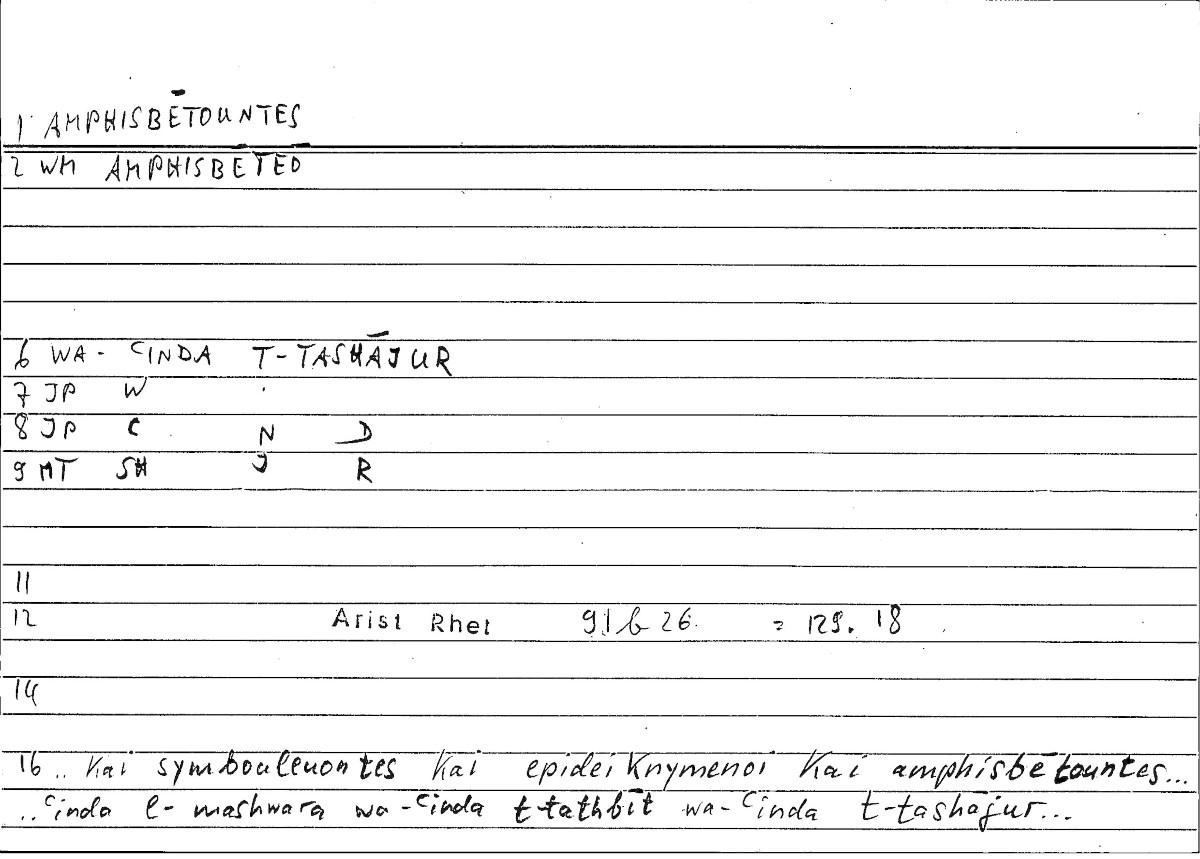 1 AMPHISBĒTOUNTES
2 WM AMPHISBĒTEŌ
6 WA- ʿINDA T-TASHĀJUR
7 JP W
8 JP ʿ N D
9 MT SH J R
11
12 Arist Rhet 91b26 = 129.18
14
16 .. kai symbouleuontes kai epideiknymenoi kai amphisbētountes...
..ʿinda l-mashwara wa-ʿinda t-tathbīt wa-ʿinda t-tashājur...